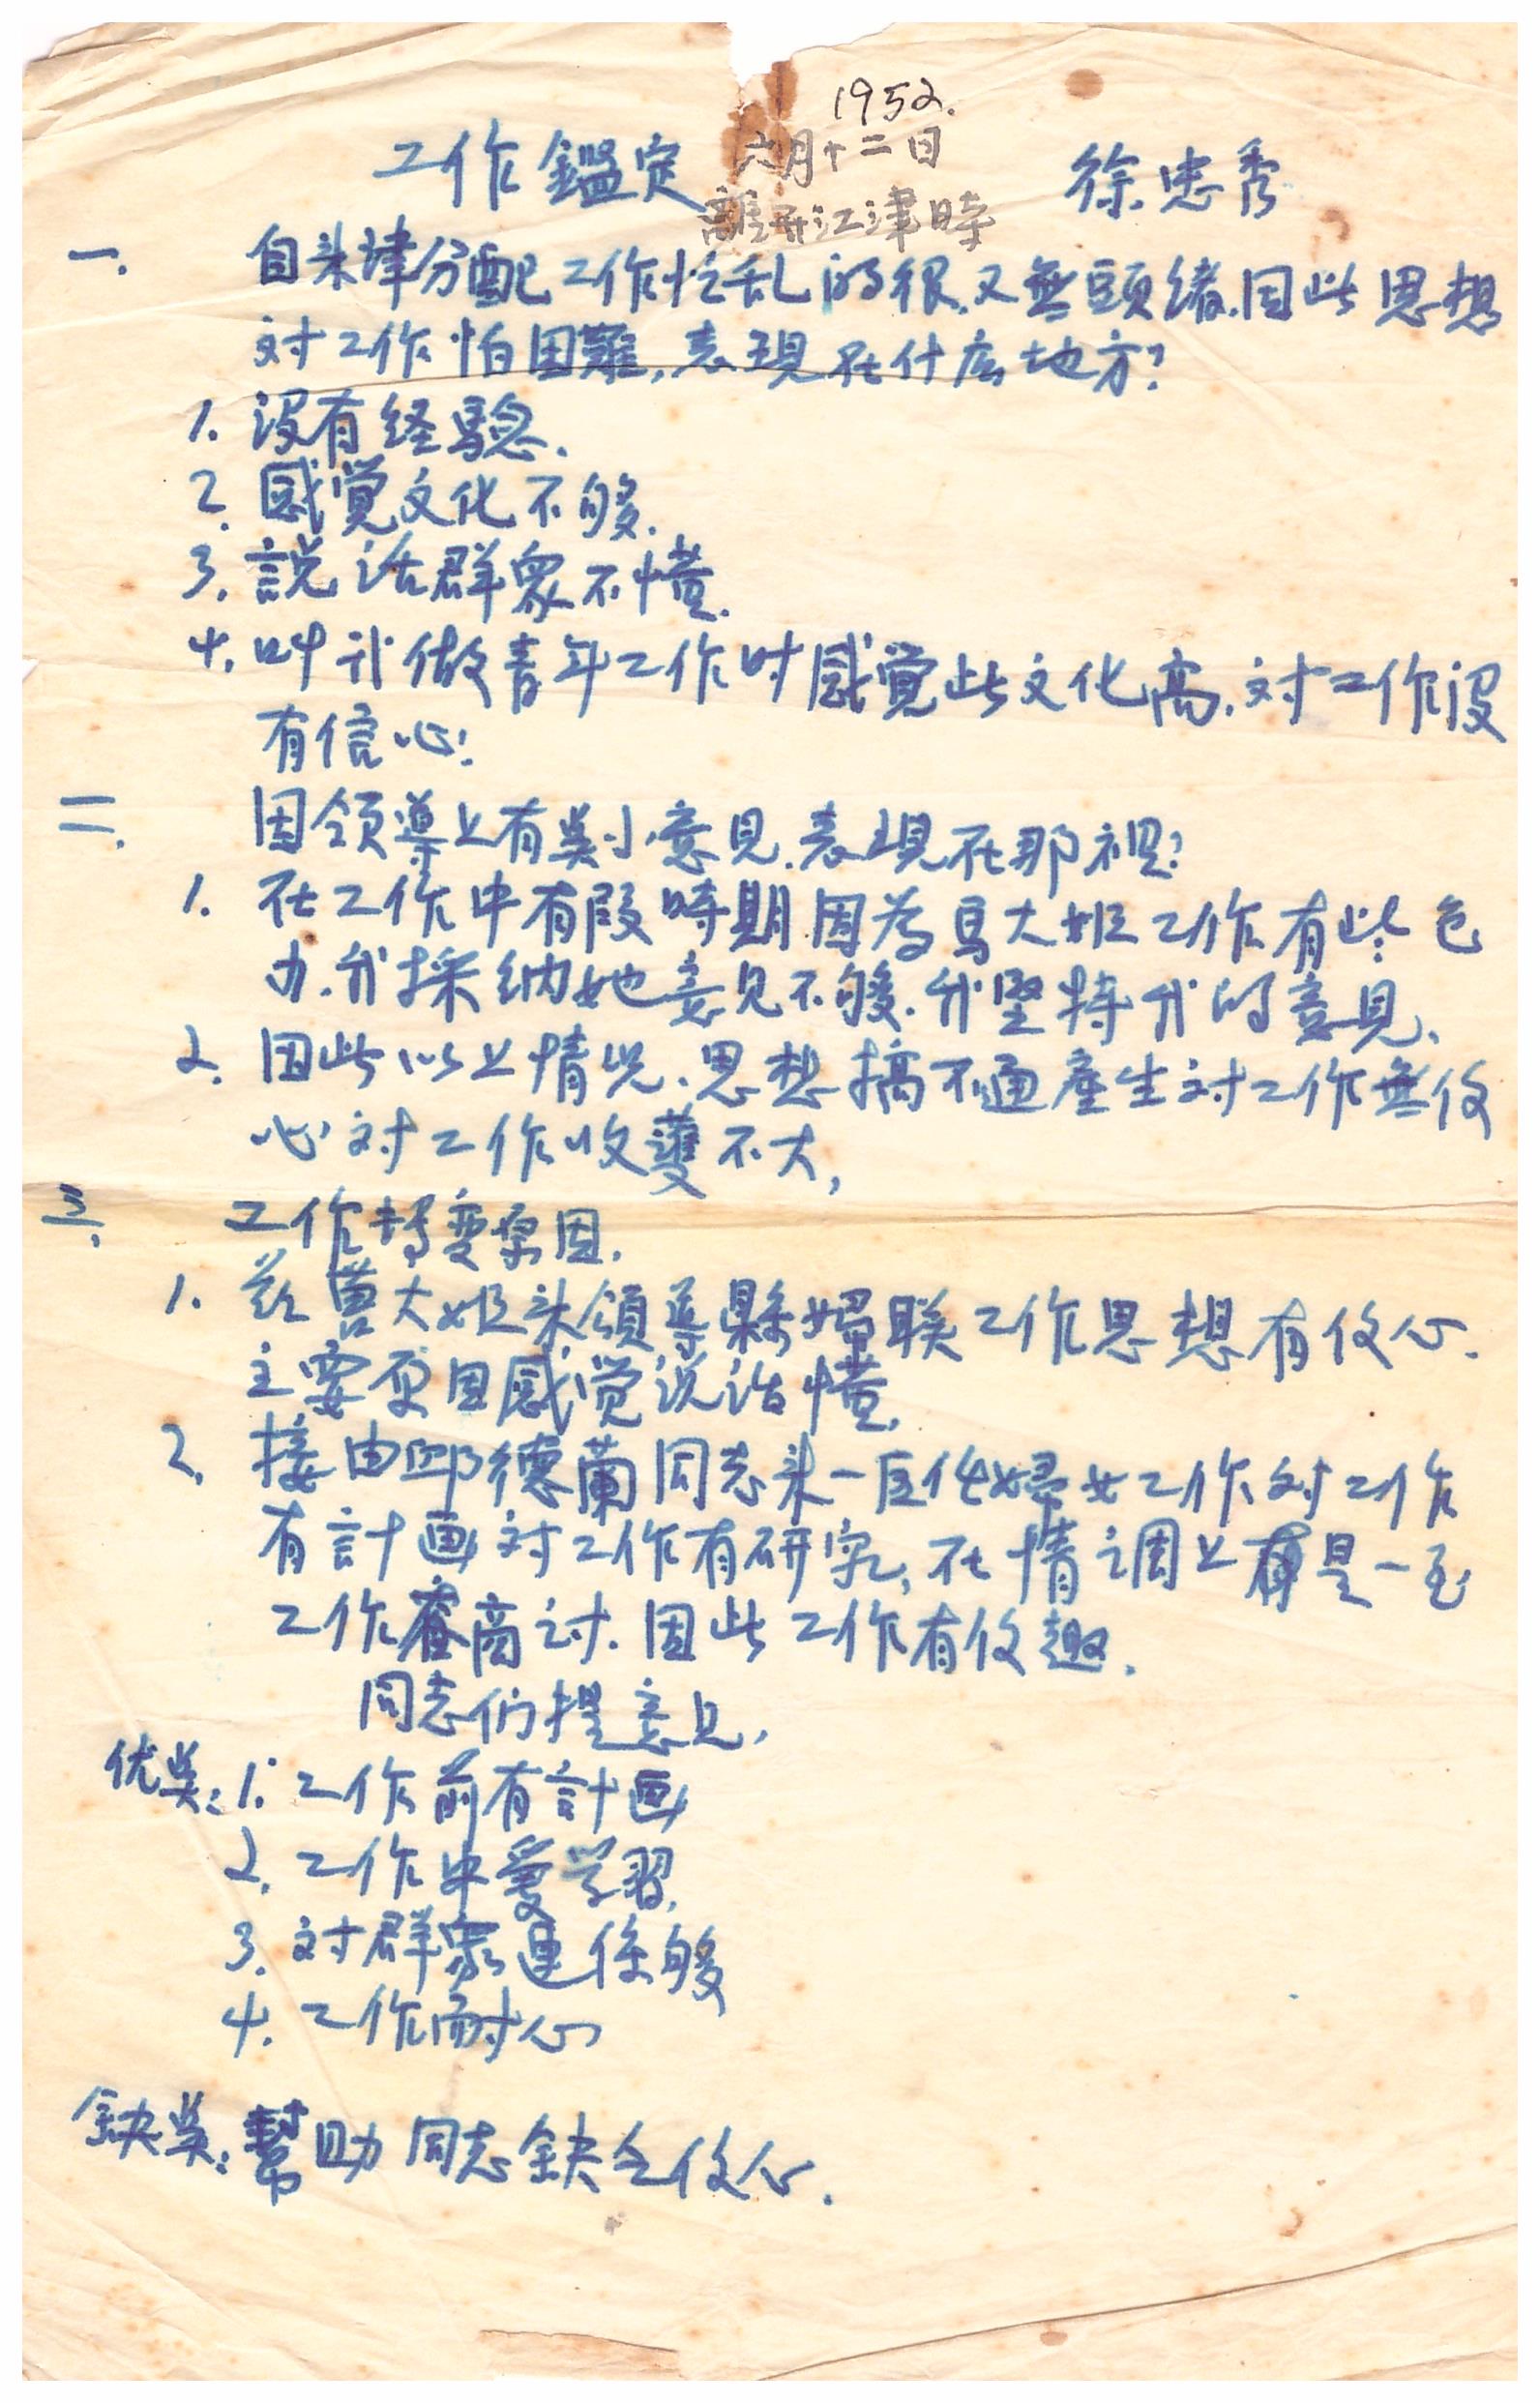 1952.
六月十二日
離开江津時
工作鑑定 徐忠秀
一. 自来津分配工作忙乱的很.又無頭緒.因此思想
対工作怕困難,表現在什広地方?
1. 没有経驗.
2. 感覚文化不够.
3. 説话群衆不懂.
4. 叫我做青年工作时感覚此文化高.対工作没
有信心!
二. 因領導上有美小意見.表現在那裡?
1. 在工作中有段時期因为马大姐工作有些包
办.我採納她意見不够.我堅持我的意見.
2. 因此以上情况.思想搞不通産生対工作無仪
心対工作收護不大,
三. 工作转变原因.
1. 曹大姐来領導縣婦联工作思想有仪心.
主要原因感覚说话懂.
2. 接由邱德蘭同志来一区化婦女工作対工作
有計画対工作有研究,在情调上有是一致
工作商讨.因此工作有仪趣.
同志们提意見,
优美:1. 工作前有計画
2. 工作中爱学習.
3. 対群衆連係够
4. 工作耐心
缺美:幫助同志缺乏仪心.